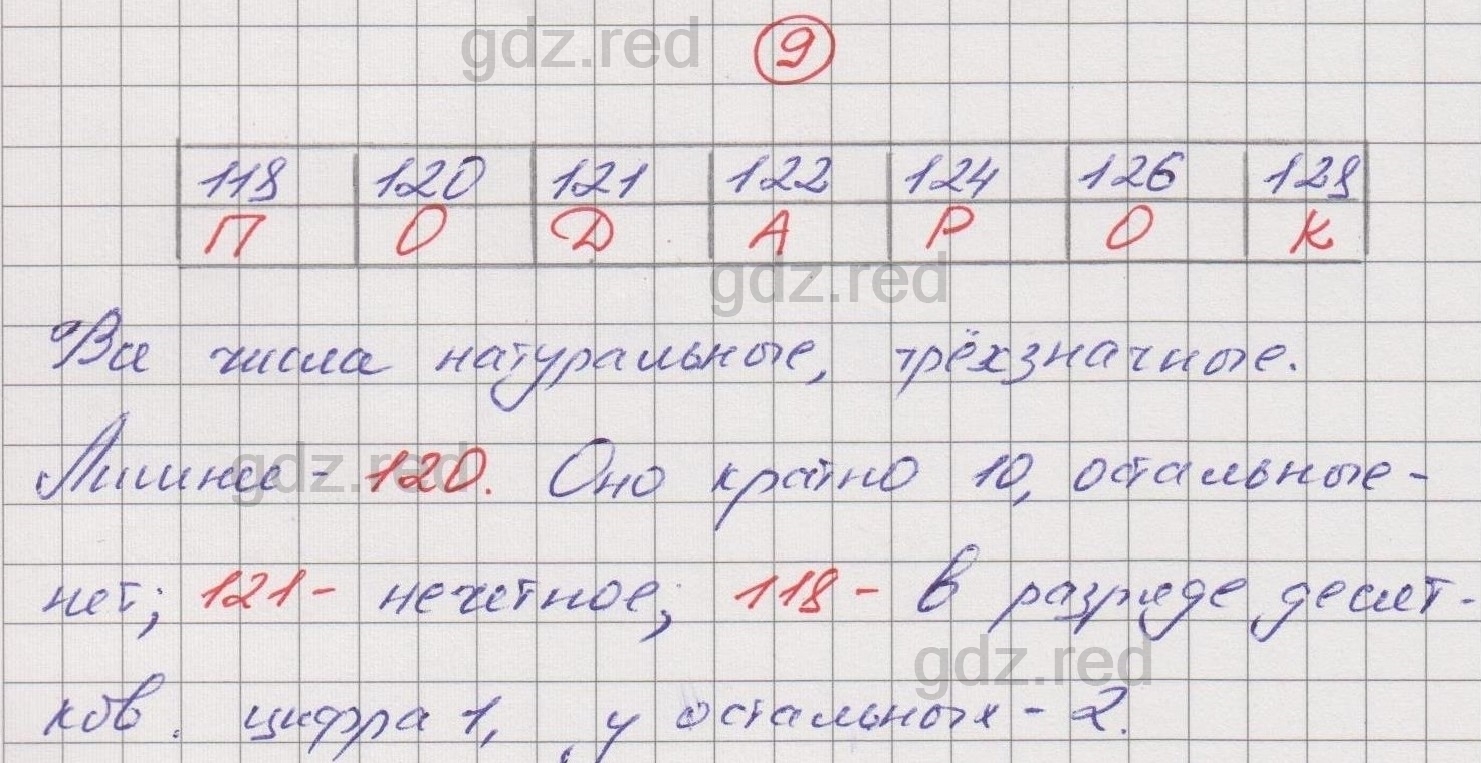 gdz.red
9
118 120 121 122 124 126 128
П О Д А Р О К
gdz.red
Все числа натуральные, трёхзначные.
gdz.red
Лишнее - 120. Оно кратно 10, остальные -
нет; 121 - нечетное; 118 - в разряде десят-
gdz.red
ков цифра 1, у остальных - 2.